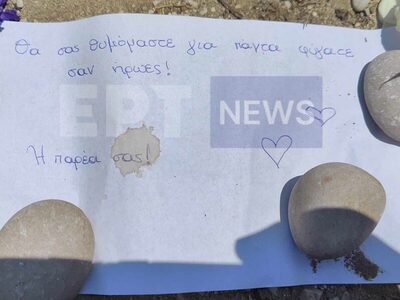 Θα σας θυμόμαστε για πάντα φίλατε
σαν ήρωες!
ΕΡΤ NEWS
Η παρέα σας!